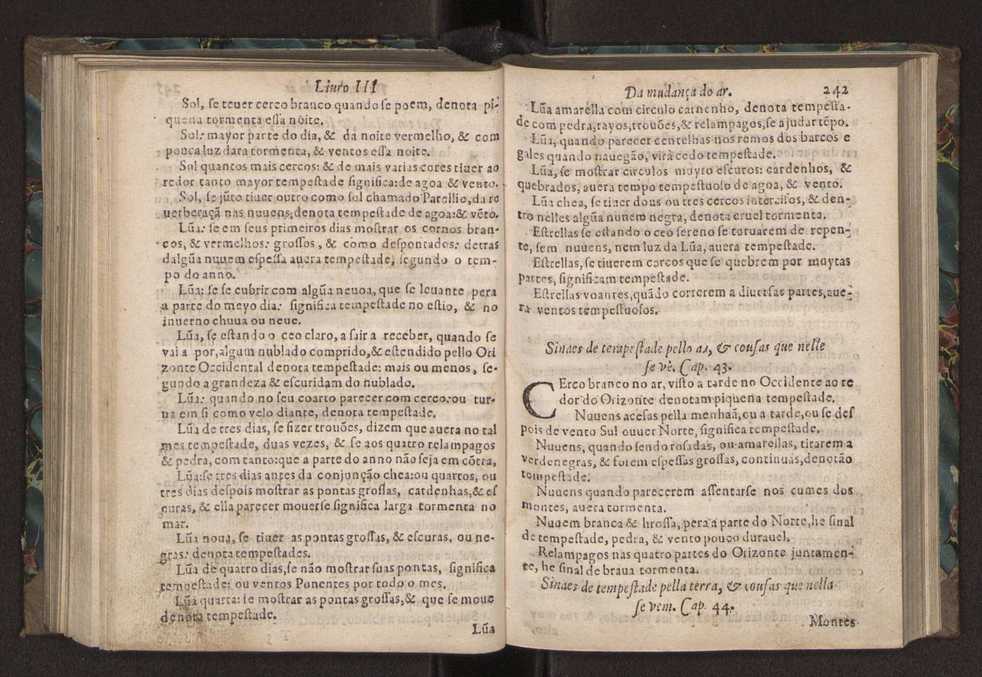 Liuro III
Sol, se teuer cerco branco quando se poem, denota pi-
quena tormenta essa noite.
Sol: mayor parte do dia, & da noite vermelho, & com
pouca luz dara tormenta, & ventos essa noite.
Sol quantos mais cercos: & de mais varias cores tiuer ao
redor tanto mayor tempestade significa: de agoa & vento.
Sol, se jũto tiuer outro como sol chamado Parelio, da re
uerberaçã nas nuuens, denota tempestade de agoa: & vẽto.
Lũa: se em seus primeiros dias mostrar os cornos bran-
cos, & vermelhos: grossos, & como despontados: detras
dalgũa nuuem espessa auera tempestade, segundo o tem-
po do anno.
Lũa: se se cubrir com algũa neuoa, que se leuante pera
a parte do meyo dia: significa tempestade no estio, & no
inuerno chuua ou neue.
Lũa, se estando o ceo claro, a sair a receber, quando se
vai a por, algum nublado comprido, & estendido pello Ori
zonte Occidental denota tempestade: mais ou menos, se-
gundo a grandeza & escuridam do nublado.
Lũa: quando no seu coarto parecer com cerco: ou tur-
ua em si como velo diante, denota tempestade.
Lũa de tres dias, se fizer trouões, dizem que auera no tal
mes tempestade, duas vezes, & se aos quatro relampagos
& pedra, com tanto: que a parte do anno não seja em cõtra,
Lũa: se tres dias antes da conjunção chea: ou quartos, ou
tres dias despois mostrar as pontas grossas, cardenhas, & es
curas, & ella parecer mouerse significa larga tormenta no
mar.
Lũa noua, se tiuer as pontas grossas, & escuras, ou ne-
gras: denota tempestades.
Lũa de quatro dias, se não mostrar suas pontas, significa
tempestade: ou ventos Ponentes por todo o mes.
Lũa quarta: se mostrar as pontas grossas, & que se moue
denota tempestade.
Lũa
Da mudança do ar. 242
Lũa amarella com circulo carnenho, denota tempesta-
de com pedra, rayos, trouões, & relampagos, se ajudar tẽpo.
Lũa, quando parecer centelhas nos remos dos barcos e
gales quando nauegão, virà cedo tempestade.
Lũa, se mostrar circulos muyto escuros: cardenhos, &
quebrados, auera tempo tempestuoso de agoa, & vento.
Lũa chea, se tiuer dous ou tres cercos intercisos, & den-
tro nelles algũa nuuem negra, denota cruel tormenta.
Estrellas se estando o ceo sereno se toruarem de repen-
te, sem nuuens, nem luz da Lũa, auera tempestade.
Estrellas, se tiuerem cercos que se quebrem por muytas
partes, significam tempestade.
Estrellas voantes, quãdo correrem a diuersas partes, aue-
ra ventos tempestuosos.
Sinaes de tempestade pello ar, & cousas que nelle
se vè. Cap. 43.
CErco branco no ar, visto a tarde no Occidente ao re
dor do Orizonte denotam piquena tempestade.
Nuuens acesas pella menhaã, ou a tarde, ou se des
pois de vento Sul ouuer Norte, significa tempestade.
Nuuens, quando sendo rosadas, ou amarellas, titarem a
verdenegras, & forem espessas grossas, continuas, denotão
tempestade.
Nuuens quando parecerem assentarse nos cumes dos
montes, auera tormenta.
Nuuem branca & hrossa, pera a parte do Norte, he sinal
de tempestade, pedra, & vento pouco durauel.
Relampagos nas quatro partes do Orizonte juntamen-
te, he sinal de braua tormenta.
Sinaes de tempestade pella terra, & cousas que nella
se vem. Cap. 44.
Montes